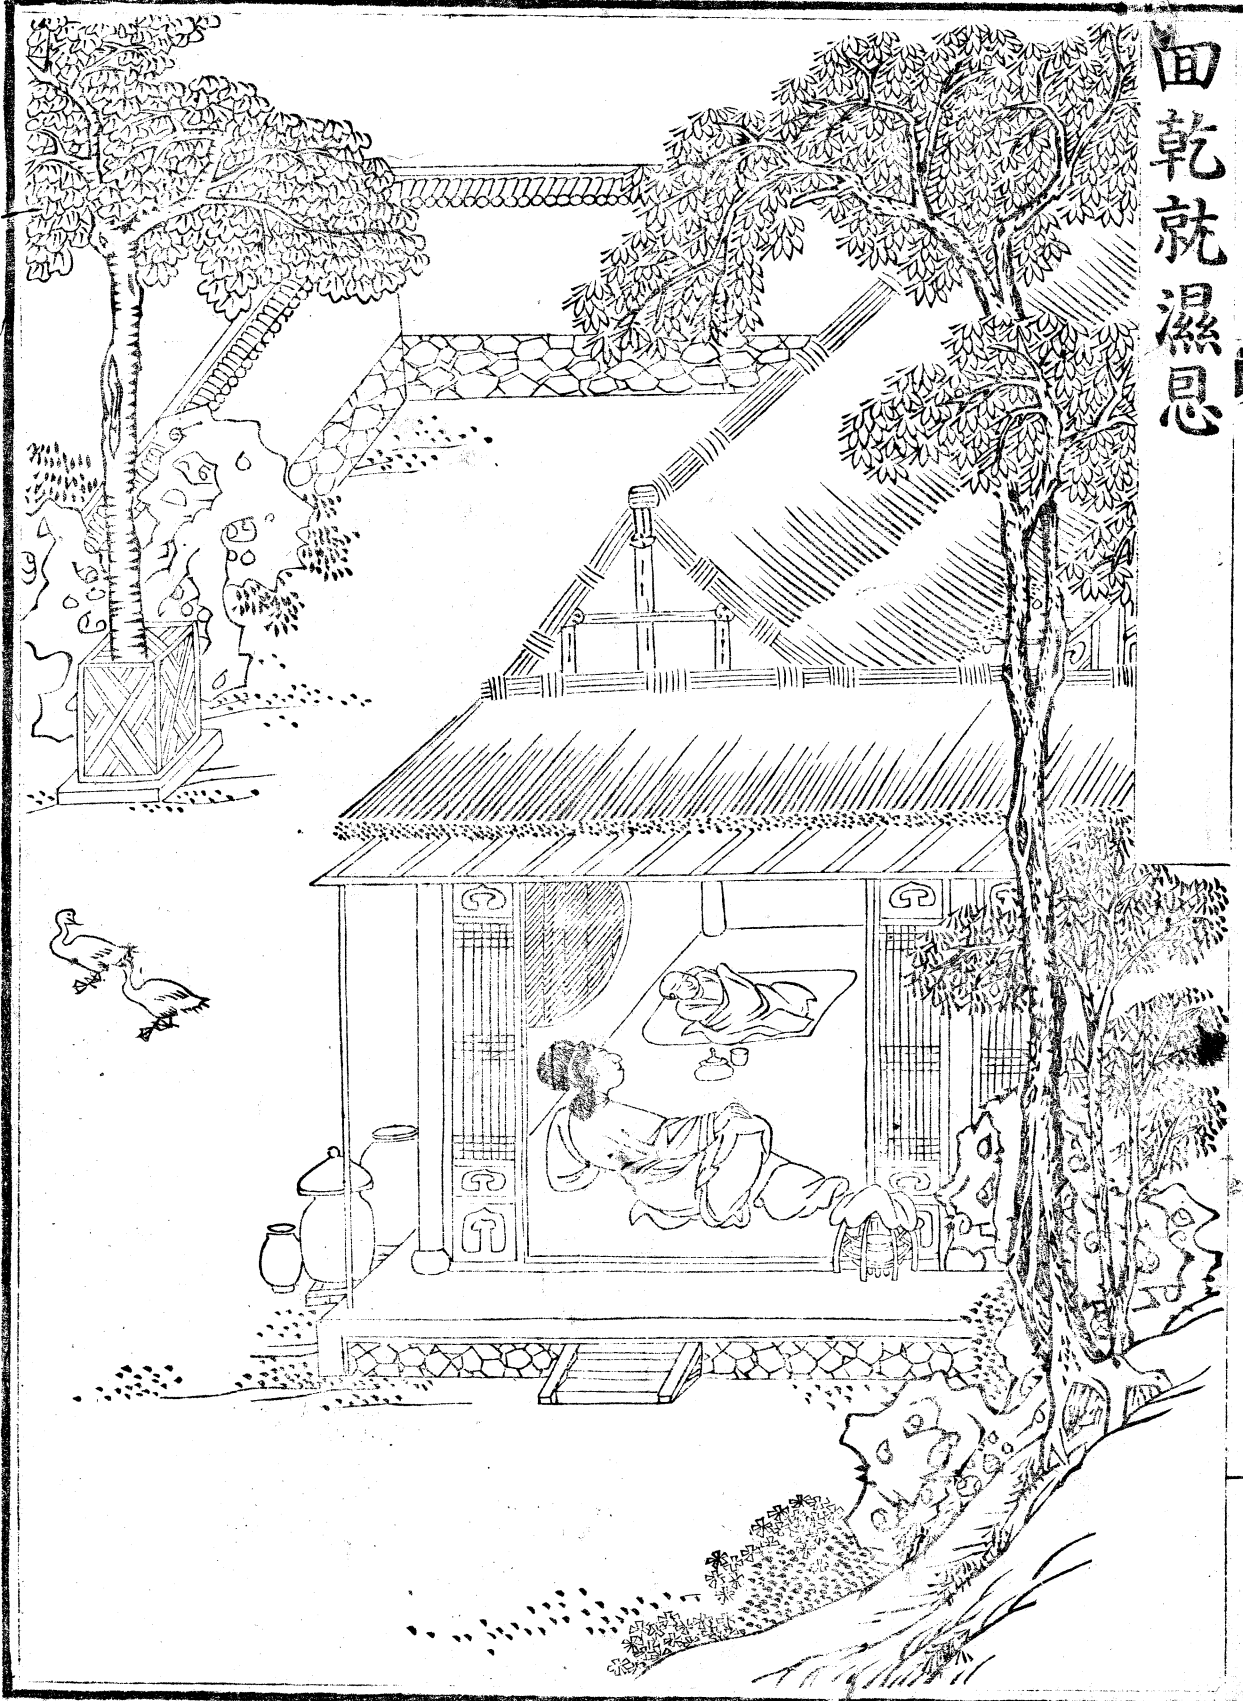 囬乾就濕恩